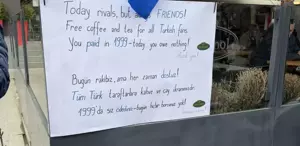 Today rivals, but always FRIENDS!
Free coffee and tea for all Turkish fans.
You paid in 1999-today you owe nothing!
Bugün rakibiz, ama her zaman dostuz!
Tüm Türk taraftarlara kahve ve çay ikramımızdır.
1999'da siz ödediniz-bugün hiçbir borcunuz yok!